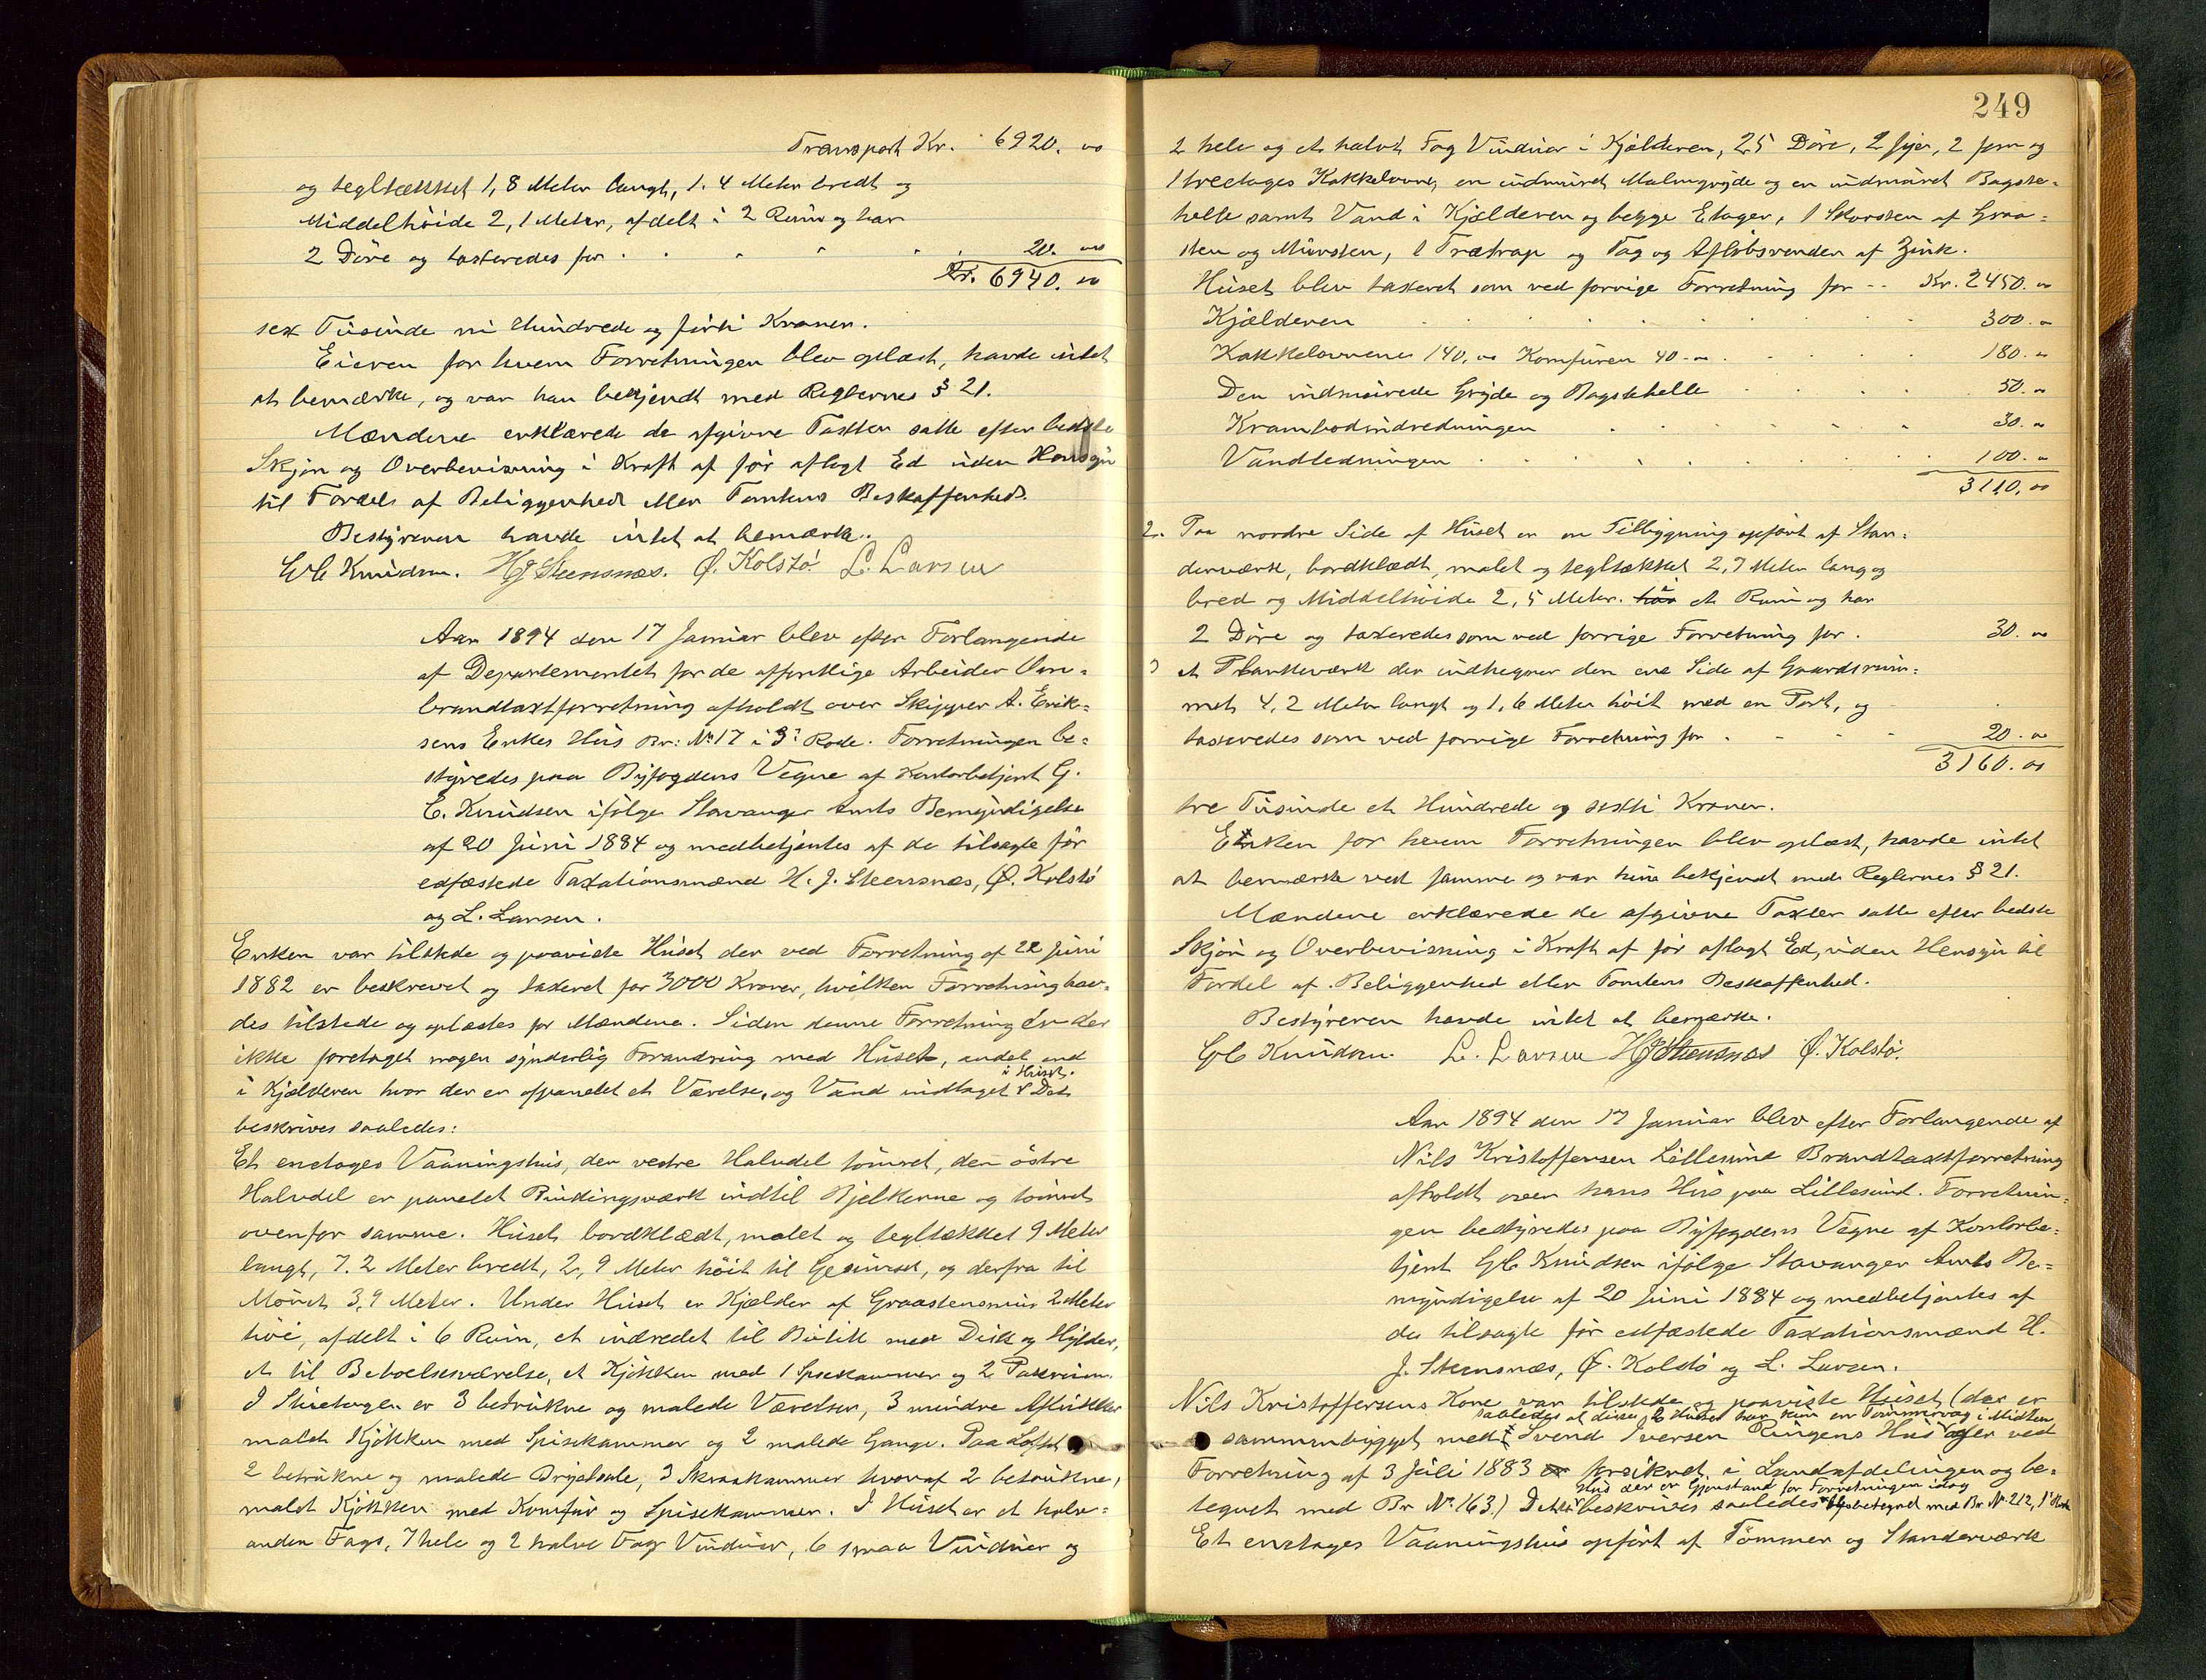 Transport Kr. 6920. 00
og tegltækket 1,8 Meter langt, 1.4 Meter bredt og
Middelhöide 2,1 Meter, afdelt i 2 Rum og har
2 Döre og taxeredes for . . . . . 20. 00
Kr. 6940. 00
sex Tusinde ni Hundrede og förti Kroner.
Eieren for hvem Forretningen blev oplæst, havde intet
at bemærke, og var han bekjendt med Reglernes § 21.
Mændene erklærede de afgivne Taxter satte efter bedste
Skjön og Overbevisning i Kraft af för aflagt Ed uden Hensyn
til Fordel af Beliggenhed eller Tomtens Beskaffenhed.
Bestyreren havde intet at bemærke.
GC Knudsen. HJ Steensnæs. Ø. Kolstö. L. Larsen
Aar 1894 den 17 Januar blev efter Forlangende
af Departementet for de offentlige Arbeider Om-
brandtaxtforretning afholdt over Skipper A. Erik-
sens Enkes Hus Br: No 17 i 3: Rode. Forretningen be-
styredes paa Byfogdens Vegne af Kontorbetjent G.
C. Knudsen ifölge Stavanger Amts Bemyndigelse
af 20 Juni 1884 og medbetjentes af de tilsagte för
edfæstede Taxationsmænd H. J. Steensnæs, Ø. Kolstö
og L. Larsen.
Enken var tilstede og paaviste Huset der ved Forretning af 22 Juni
1882 er beskrevet og taxeret for 3000 Kroner, hvilken Forretning hav-
des tilstede og oplæstes for Mændene. Siden denne Forretning er der
ikke foretaget nogen synderlig Forandring med Huset, andet end
i Huset.
i Kjælderen hvor der er afpanelet et Værelse, og Vand indtaget Det
beskrives saaledes:
Et enetages Vaaningshus, den vestre Halvdel tömret, den östre
Halvdel er panelet Bindingsværk indtil Bjelkerne og tömret
ovenfor samme. Huset bordklædt, malet og tegltækket 9 Meter
langt, 7.2 Meter bredt, 2,9 Meter höit til Gesimset, og derfra til
Mönet 3,9 Meter. Under Huset er Kjælder af Graastensmur 2 Meter
höi, afdelt i 6 Rum, et indredet til Butik med Disk og Hylder,
et til Beboelsesværelse, et Kjökken med 1 Spisekammer og 2 Pakrum.
I Stueetagen er 3 betrukne og malede Værelser, 3 mindre Aflukker
malet Kjökken med Spisekammer og 2 malede Gange. Paa Loftet
2 betrukne og malede Brystsale, 3 Skraakammer hvoraf 2 betrukne,
malet Kjökken med Komfur og Spisekammer. I Huset er et halv-
anden Fags, 7 hele og 2 halve Fag Vinduer, 6 smaa Vinduer og
249
2 hele og et halvt Fag Vinduer i Kjælderen, 25 Döre, 2 2 og
1 treetages Kakkelovne, en indmuret Malmgryde og en indmuret Bagste-
helle samt Vand i Kjælderen og begge Etager, 1 Skorsten af Graa-
sten og Mursten, 1 Trætrap og Tag og Aflöbsrender af Zink.
Huset blev taxeret som ved forrige Forretning for -- Kr. 2450. 00
Kjælderen . . . . . . 300. 00
Kakkelovnene 140. 00 Komfuren 40. 00 . . . . 180. 00
Den indmurede Gryde og Bagstehelle . . . 50. 00
Krambodindredningen . . . . . 30. 00
Vandledningen . . . . . . 100. 00
3110. 00
2. Paa nordre Side af Huset er en Tilbygning opfört af Stan-
derværk, bordklædt, malet og tegltækket 2,7 Meter lang og
bred og Middelhöide 2,5 Meter. i et Rum og har
2 Döre og taxeredes som ved forrige Forretning for . 30. 00
3 et Plankeværk der indhegner den ene Side af Gaardsrum-
met 4,2 Meter langt og 1,6 Meter höit med en Port, og
taxeredes som ved forrige Forretning for . . . . 20. 00
3160. 00
tre Tusinde et Hundrede og sexti Kroner.
Enken for hvem Forretningen blev oplæst, havde intet
at bemærke ved samme og var hun bekjendt med Reglernes § 21.
Mændene erklærede de afgivne Taxter satte efter bedste
Skjön og Overbevisning i Kraft af för aflagt Ed, uden Hensyn til
Fordel af Beliggenhed eller Tomtens Beskaffenhed.
Bestyreren havde intet at bemærke.
GC Knudsen. L. Larsen HJ Steensnæs Ø. Kolstö.
Aar 1894 den 17 Januar blev efter Forlangende af
Nils Kristoffersen Lillesund Brandtaxtforretning
afholdt over hans Hus paa Lillesund. Forretnin-
gen bestyredes paa Byfogdens Vegne af Kontorbe-
tjent GC Knudsen ifölge Stavanger Amts Be-
myndigelse af 20 Juni 1884 og medbetjentes af
de tilsagte för edfæstede Taxationsmænd H.
J. Steensnæs, Ø. Kolstö og L. Larsen.
Nils Kristoffersens Kone var tilstede og paaviste Huset (der er
saaledes at disse 2 Huse har kun en Tömmervæg i Midten
sammenbygget med Svend Iversen Ringens Hus og er ved
Forretning af 3 Juli 1883 forsikret i Landafdelingen og be-
Hus der er Gjenstand for Forretningen idag
tegnet med Br No 163.) Dette beskrives saaledes betegnet med Br. No 212, 1' Rode
Et enetages Vaaningshus opfört af Tömmer og Standerværk